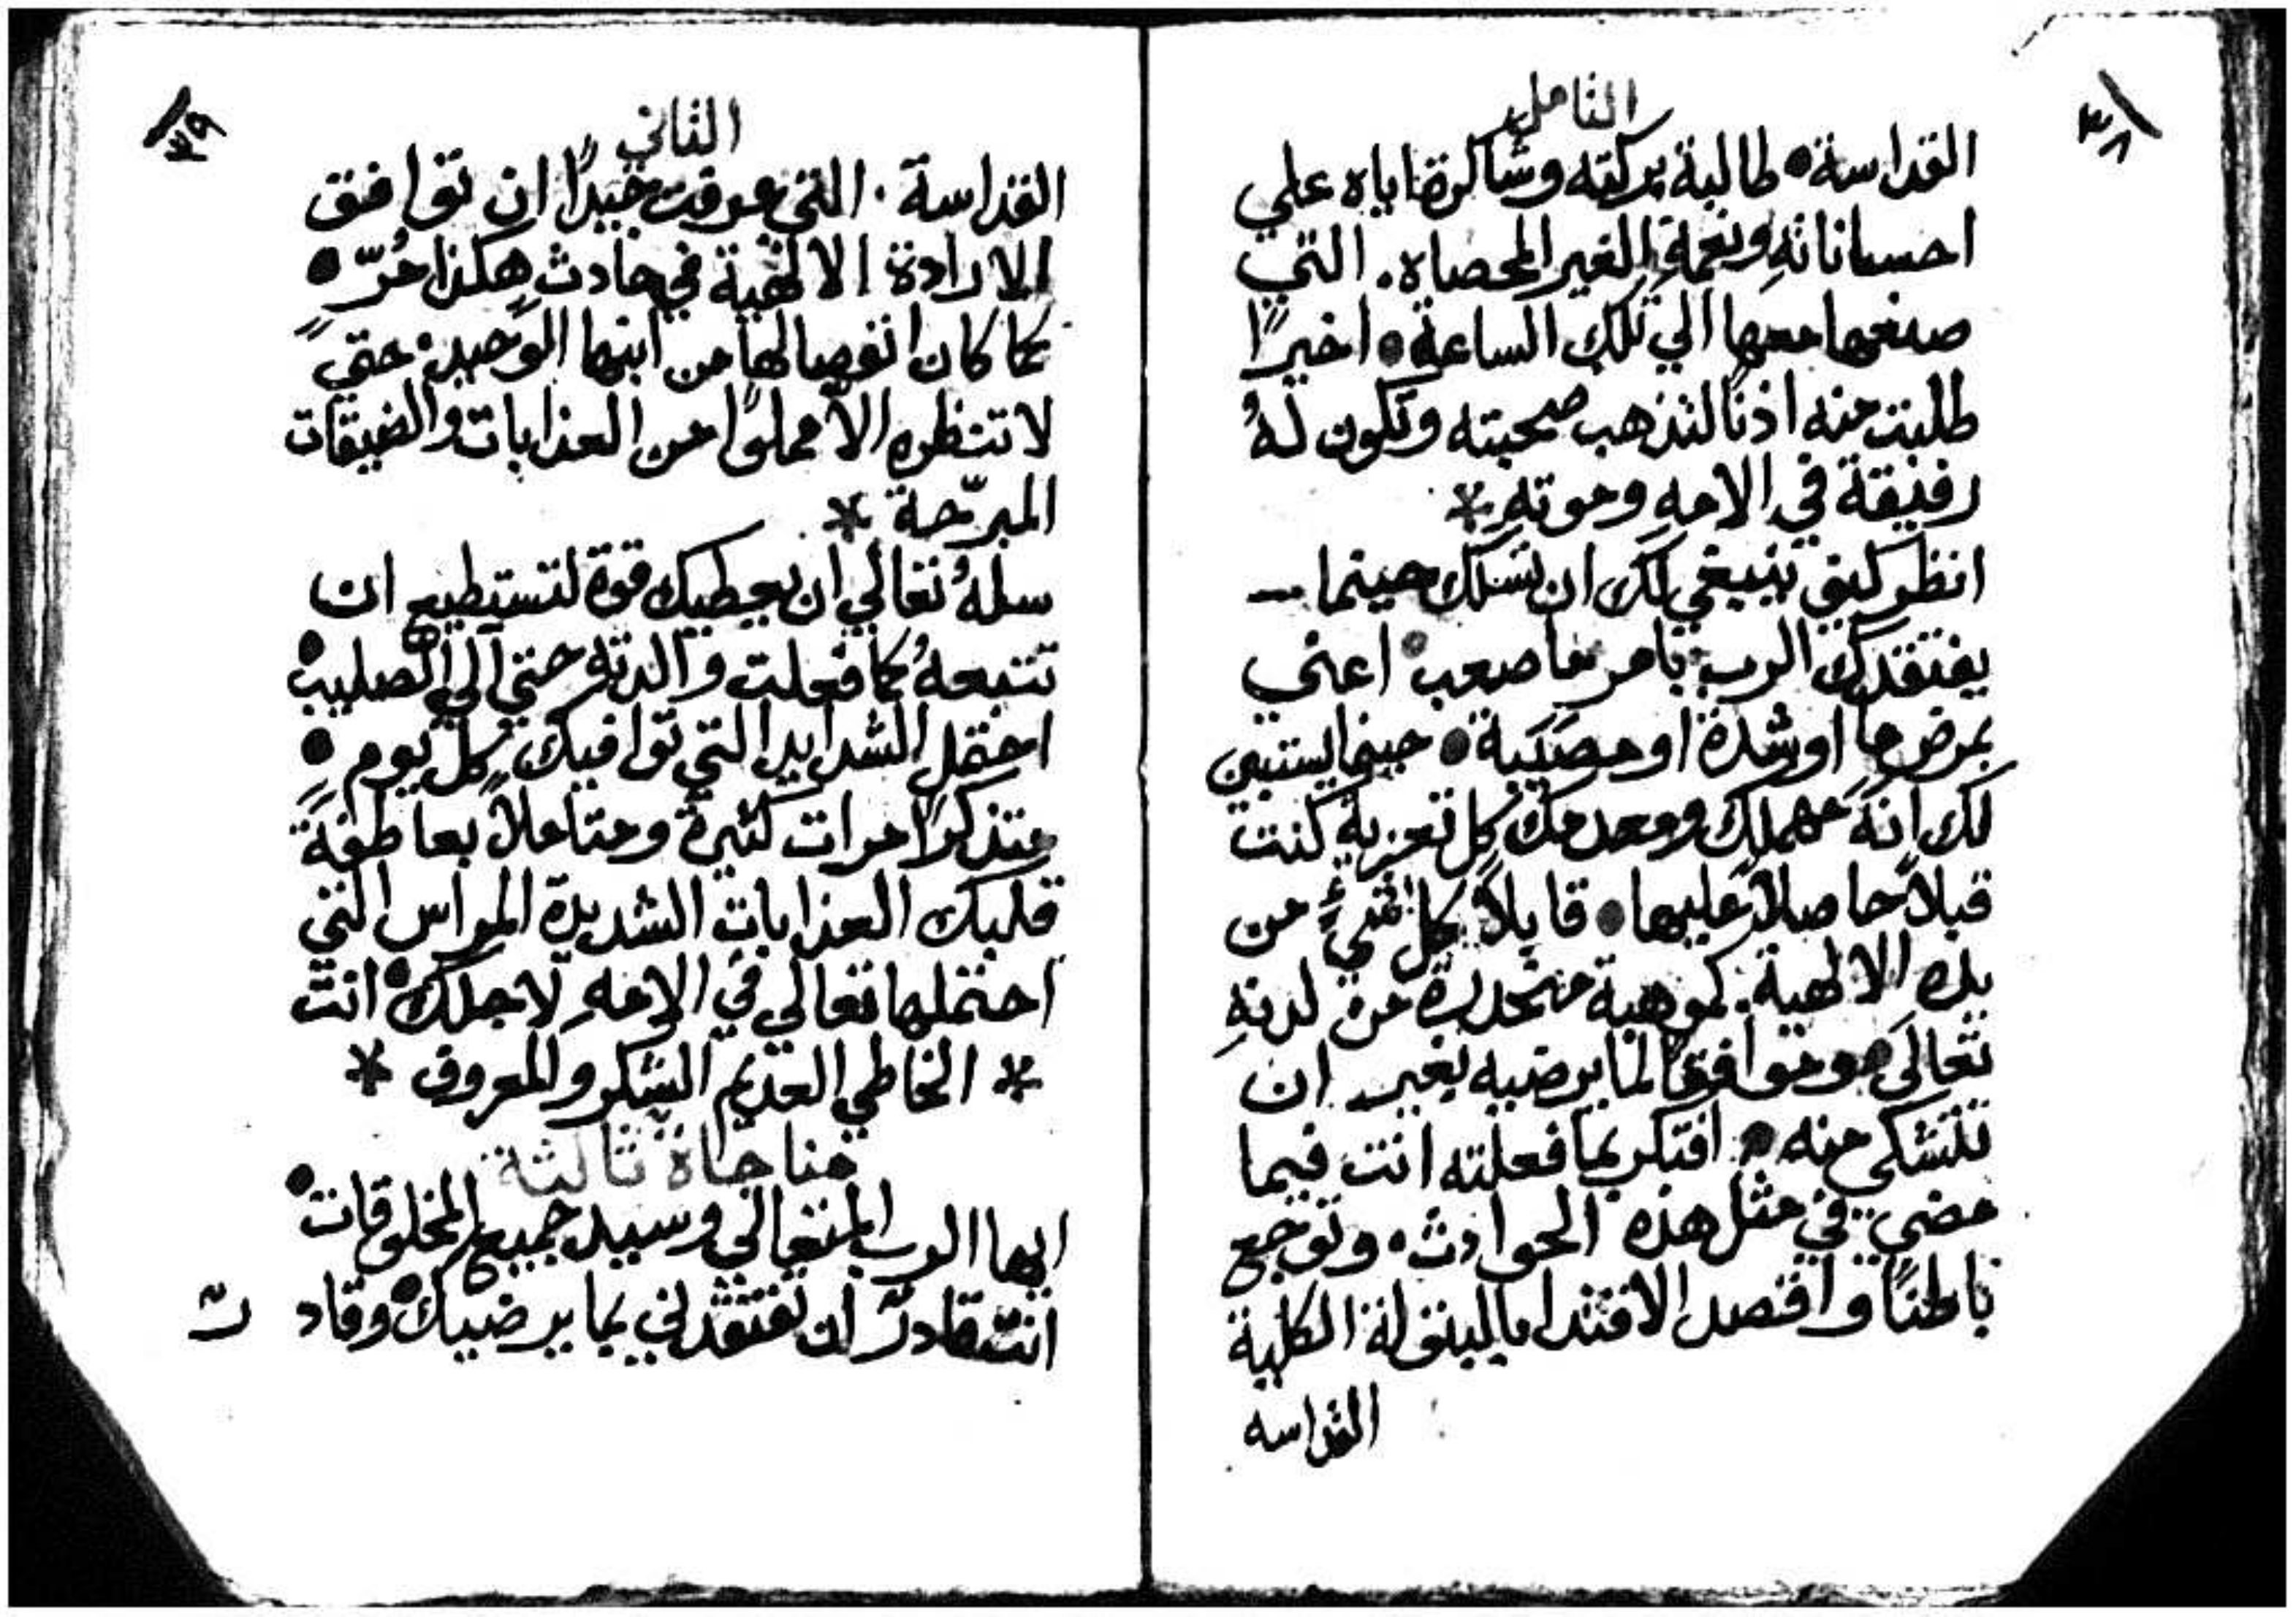 ٣٨
التامل
القداسة • طالبة بركته وشاكرة اياه علي
احساناته ونعمه الغير المحصاه. التي
صنعها معها الي تلك الساعة • اخيرًا
طلبت منه اذنًا لتذهب صحبته وتكون لهُ
رفيقة في الامهِ وموتهِ *
انظر كيف ينبغي لك ان تسلك حينما
يفتقدك الرب بامر ما صعب • اعني
بمرض ما او شدة او مصيبة • حينما يستبين
لك انهُ مهملك ومعدمك كل تعزية كنت
قبلاً حاصلاً عليها • قابلاً كل شيٍ من
يده الالهية. كموهبة منحدرة من لدنهِ
تعالى • وموافقًا لما يرضيه بغير ان
تتشكى منه • افتكر بما فعلته انت فيما
مضي في مثل هذه الحوادث • وتوجع
باطنًا واقصد الاقتدا بالبتولة الكلية
القداسه
٣٩
الثاني
القداسة. التي عرفت جيدًا ان توافق
الارادة الالهية في حادث هكذا مُرّ •
كما كان انفصالها من ابنها الوحيد • حتي
لا تنتظره الا مملوًا من العذابات والضيقات
المبرّحة *
سلهُ تعالي ان يعطيك قوة لتستطيع ان
تتبعهُ كما فعلت والدته حتي الي الصليب •
احتمل الشدايد التي توافيك كل يوم •
متذكرًا مرات كثيرة ومتاملاً بعاطفة
قلبك العذابات الشديدة المراس التي
احتملها تعالي في الامهِ لاجلك • انت
* الخاطي العديم الشكر والمعروف *
مناجاة ثالثة
ايها الرب المتعالي وسيد جميع المخلوقات •
انت قادرٌ ان تفتقدني بما يرضيك • وقاد رٌ